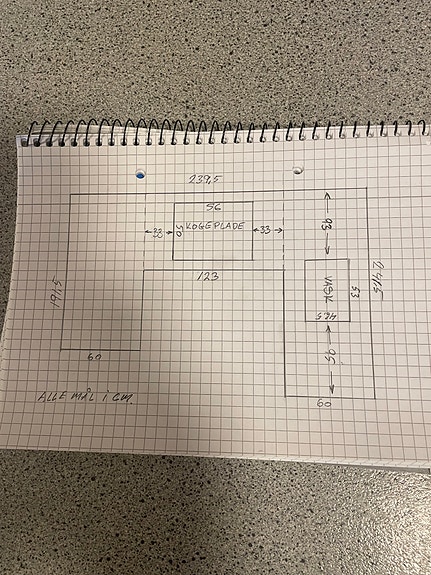 239,5
56
50
KOGEPLADE
33
33
93
123
VASK
53
42,5
241,5
191,5
95
60
60
ALLE MÅL I CM.